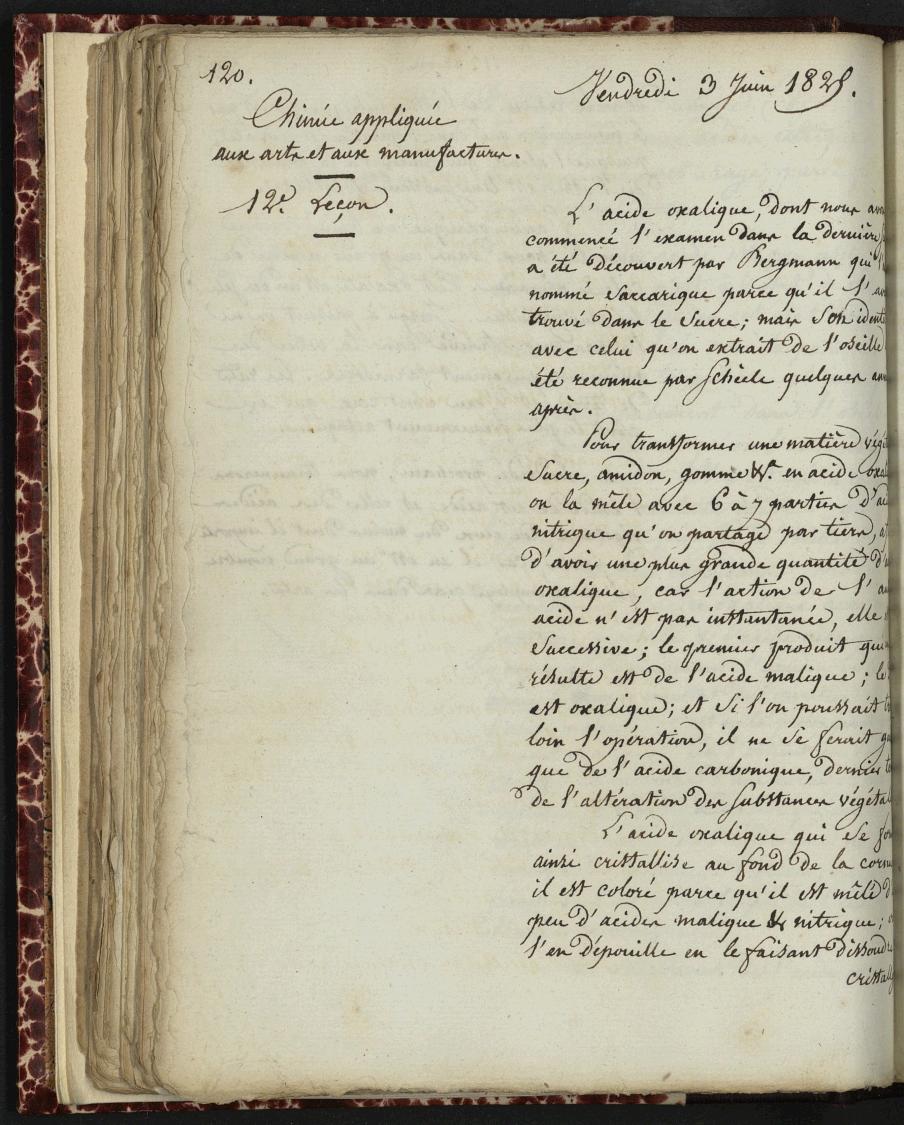 120.
Vendredi 3 Juin 1825.
Chimie appliquée
aux arts et aux manufactures.
12e. Leçon.
L'acide oxalique, dont nous
commencé l'examen dans la dernière
a été découvert par Bergmann qui
nommé saccarique parce qu'il l'
trouvé dans le sucre; mais son
avec celui qu'on extrait de l'oseille
été reconnue par Schéele quelques
après.
Pour transformer une matière
sucre, amidon, gomme &a. en acide
on la mêle avec 6 à 7 parties
nitrique qu'on partage par tiers,
d'avoir une plus grande quantité
oxalique, car l'action de
acide n'est pas instantanée, elle
successive; le premier produit
résulte est de l'acide malique;
est oxalique; et si l'on poussait
loin l'opération, il ne se ferait
que de l'acide carbonique, dernier
de l'altération des substances
L'acide oxalique qui se
ainsi cristallise au fond de la
il est coloré parce qu'il est mêlé
peu d'acides malique & nitrique;
l'en dépouille en le faisant